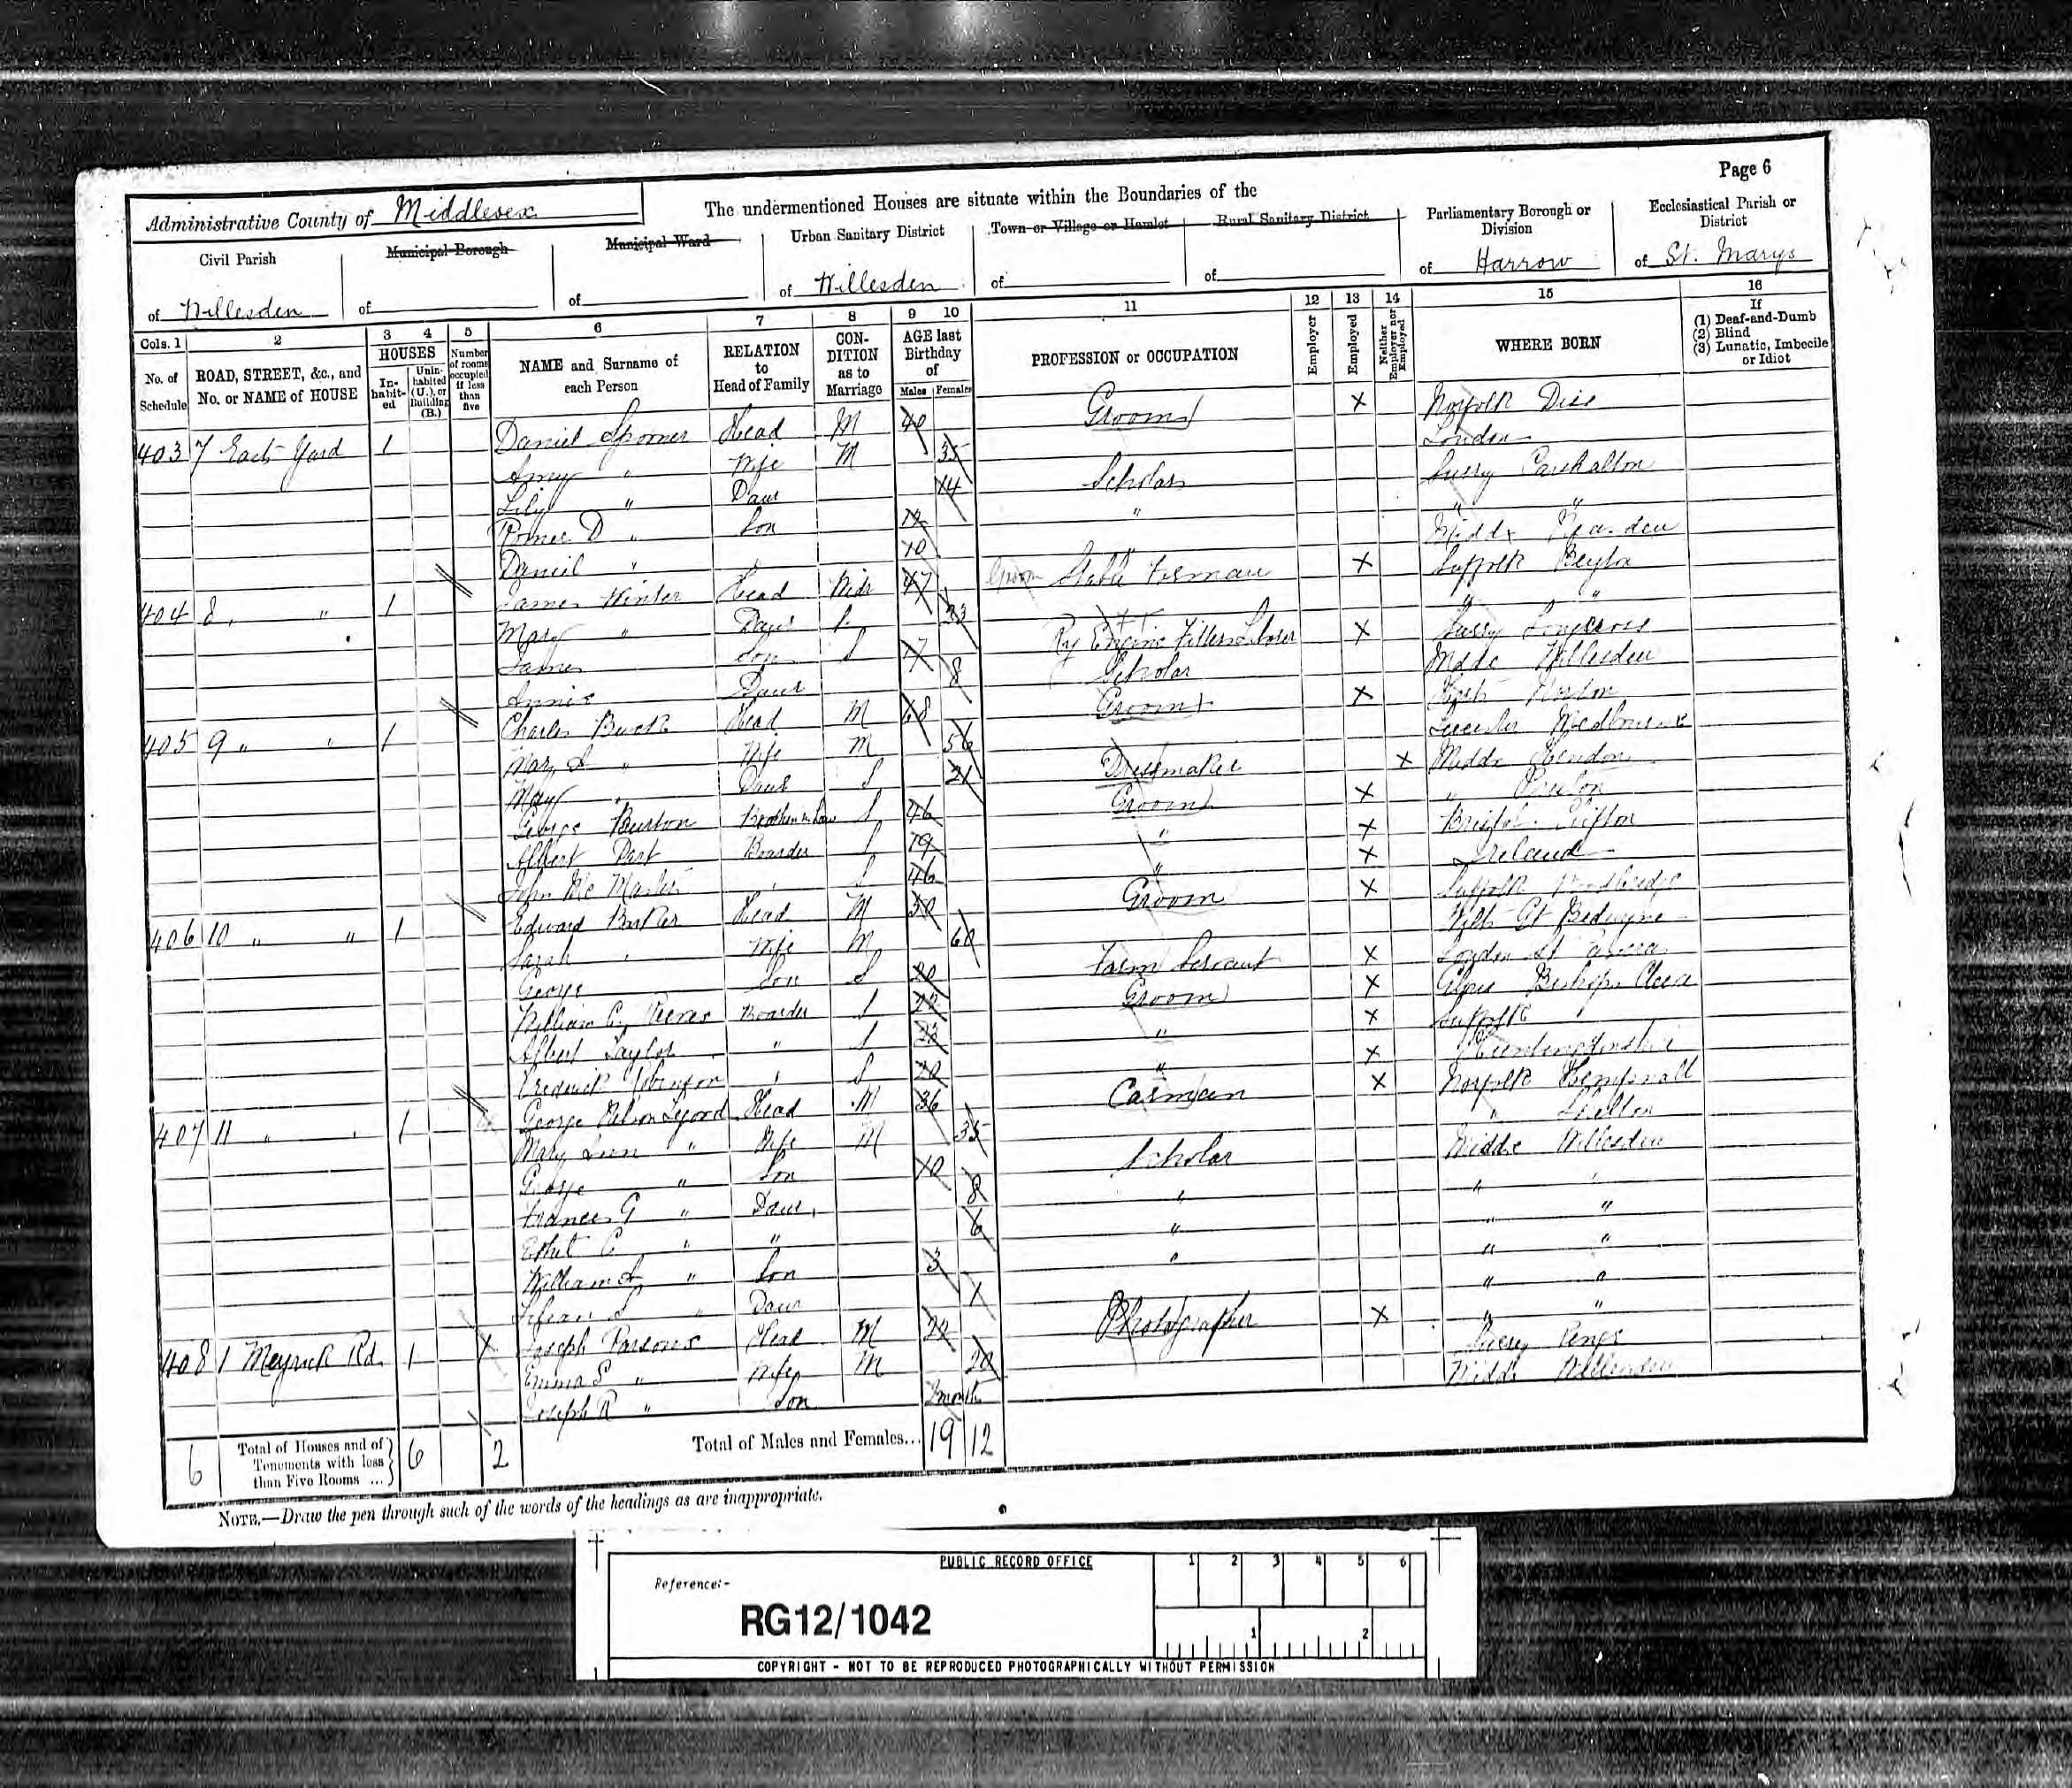 Page 6
Administrative County of Middlesex
The undermentioned Houses are situate within the Boundaries of the
Civil Parish of Willesden
Municipal Borough of
Municipal Ward of
Urban Sanitary District of Willesden
Town or Village or Hamlet of
Rural Sanitary District of
Parliamentary Borough or Division of Harrow
Ecclesiastical Parish or District of St. Marys
Cols. 1 2 3 4 5 6 7 8 9 10 11 12 13 14 15 16
No. of Schedule
ROAD, STREET, &c., and No. or NAME of HOUSE
HOUSES
In-habit-ed
Unin-habited (U.), or Building (B.)
Number of rooms occupied if less than five
NAME and Surname of each Person
RELATION to Head of Family
CON-DITION as to Marriage
AGE last Birthday of
Males Females
PROFESSION or OCCUPATION
Employer
Employed
Neither Employer nor Employed
WHERE BORN
If
(1) Deaf-and-Dumb
(2) Blind
(3) Lunatic, Imbecile or Idiot
403 7 East Yard 1 Daniel Head M 40 Groom X Norfolk Diss
" Wife M 35 London
Lily " Daur 14 Scholar Surry Carshalton
D " Son 12 " " "
Daniel " 10 " Middx
404 8 " 1 James Winter Head Widr 47 Groom Stable Foreman X Suffolk Beyton
Mary " Daur S 23 " "
James Son S 17 Ry Engine X Surry
Annie Daur 8 Scholar Middx Willesden
405 9 " " 1 Charles Head M 68 Groom X
Mary " Wife M 56 Leicester Medbourne
May " Daur S 21 Dressmaker X Middx Hendon
George Burton Brother in Law S 46 Groom X "
Albert Boarder S 19 " X Bristol Clifton
John Mc " S 46 " X Ireland
406 10 " " 1 Edward Barker Head M 50 Groom X Suffolk Woodbridge
Sarah " Wife M 60 Wilts Gt Bedwyne
George Son S 20 Farm Servant X London St
William C. Boarder S 22 Groom X Glous Bishops Cleeve
Albert Taylor " S 23 " X Suffolk
Frederick " S 20 " X Huntingdonshire
407 11 " " 1 George Head M 36 Carman X Norfolk Hempnall
Mary Ann " Wife M 35 " Shelton
George " Son 10 Scholar Middx Willesden
Frances G " Daur 8 " " "
Ethel C " " 6 " " "
William " Son 3 " " "
Lilian " Daur 1 " "
408 1 Meyrick Rd. 1 Joseph Parsons Head M Photographer X " "
Emma S " Wife M 20 Surrey
Joseph R " Son months Middx Willesden
6 Total of Houses and of Tenements with less than Five Rooms ... 6 2
Total of Males and Females... 19 12
NOTE.—Draw the pen through such of the words of the headings as are inappropriate.
PUBLIC RECORD OFFICE
1 2 3 4 5 6
Reference:-
RG12/1042
1 2
COPYRIGHT - NOT TO BE REPRODUCED PHOTOGRAPHICALLY WITHOUT PERMISSION